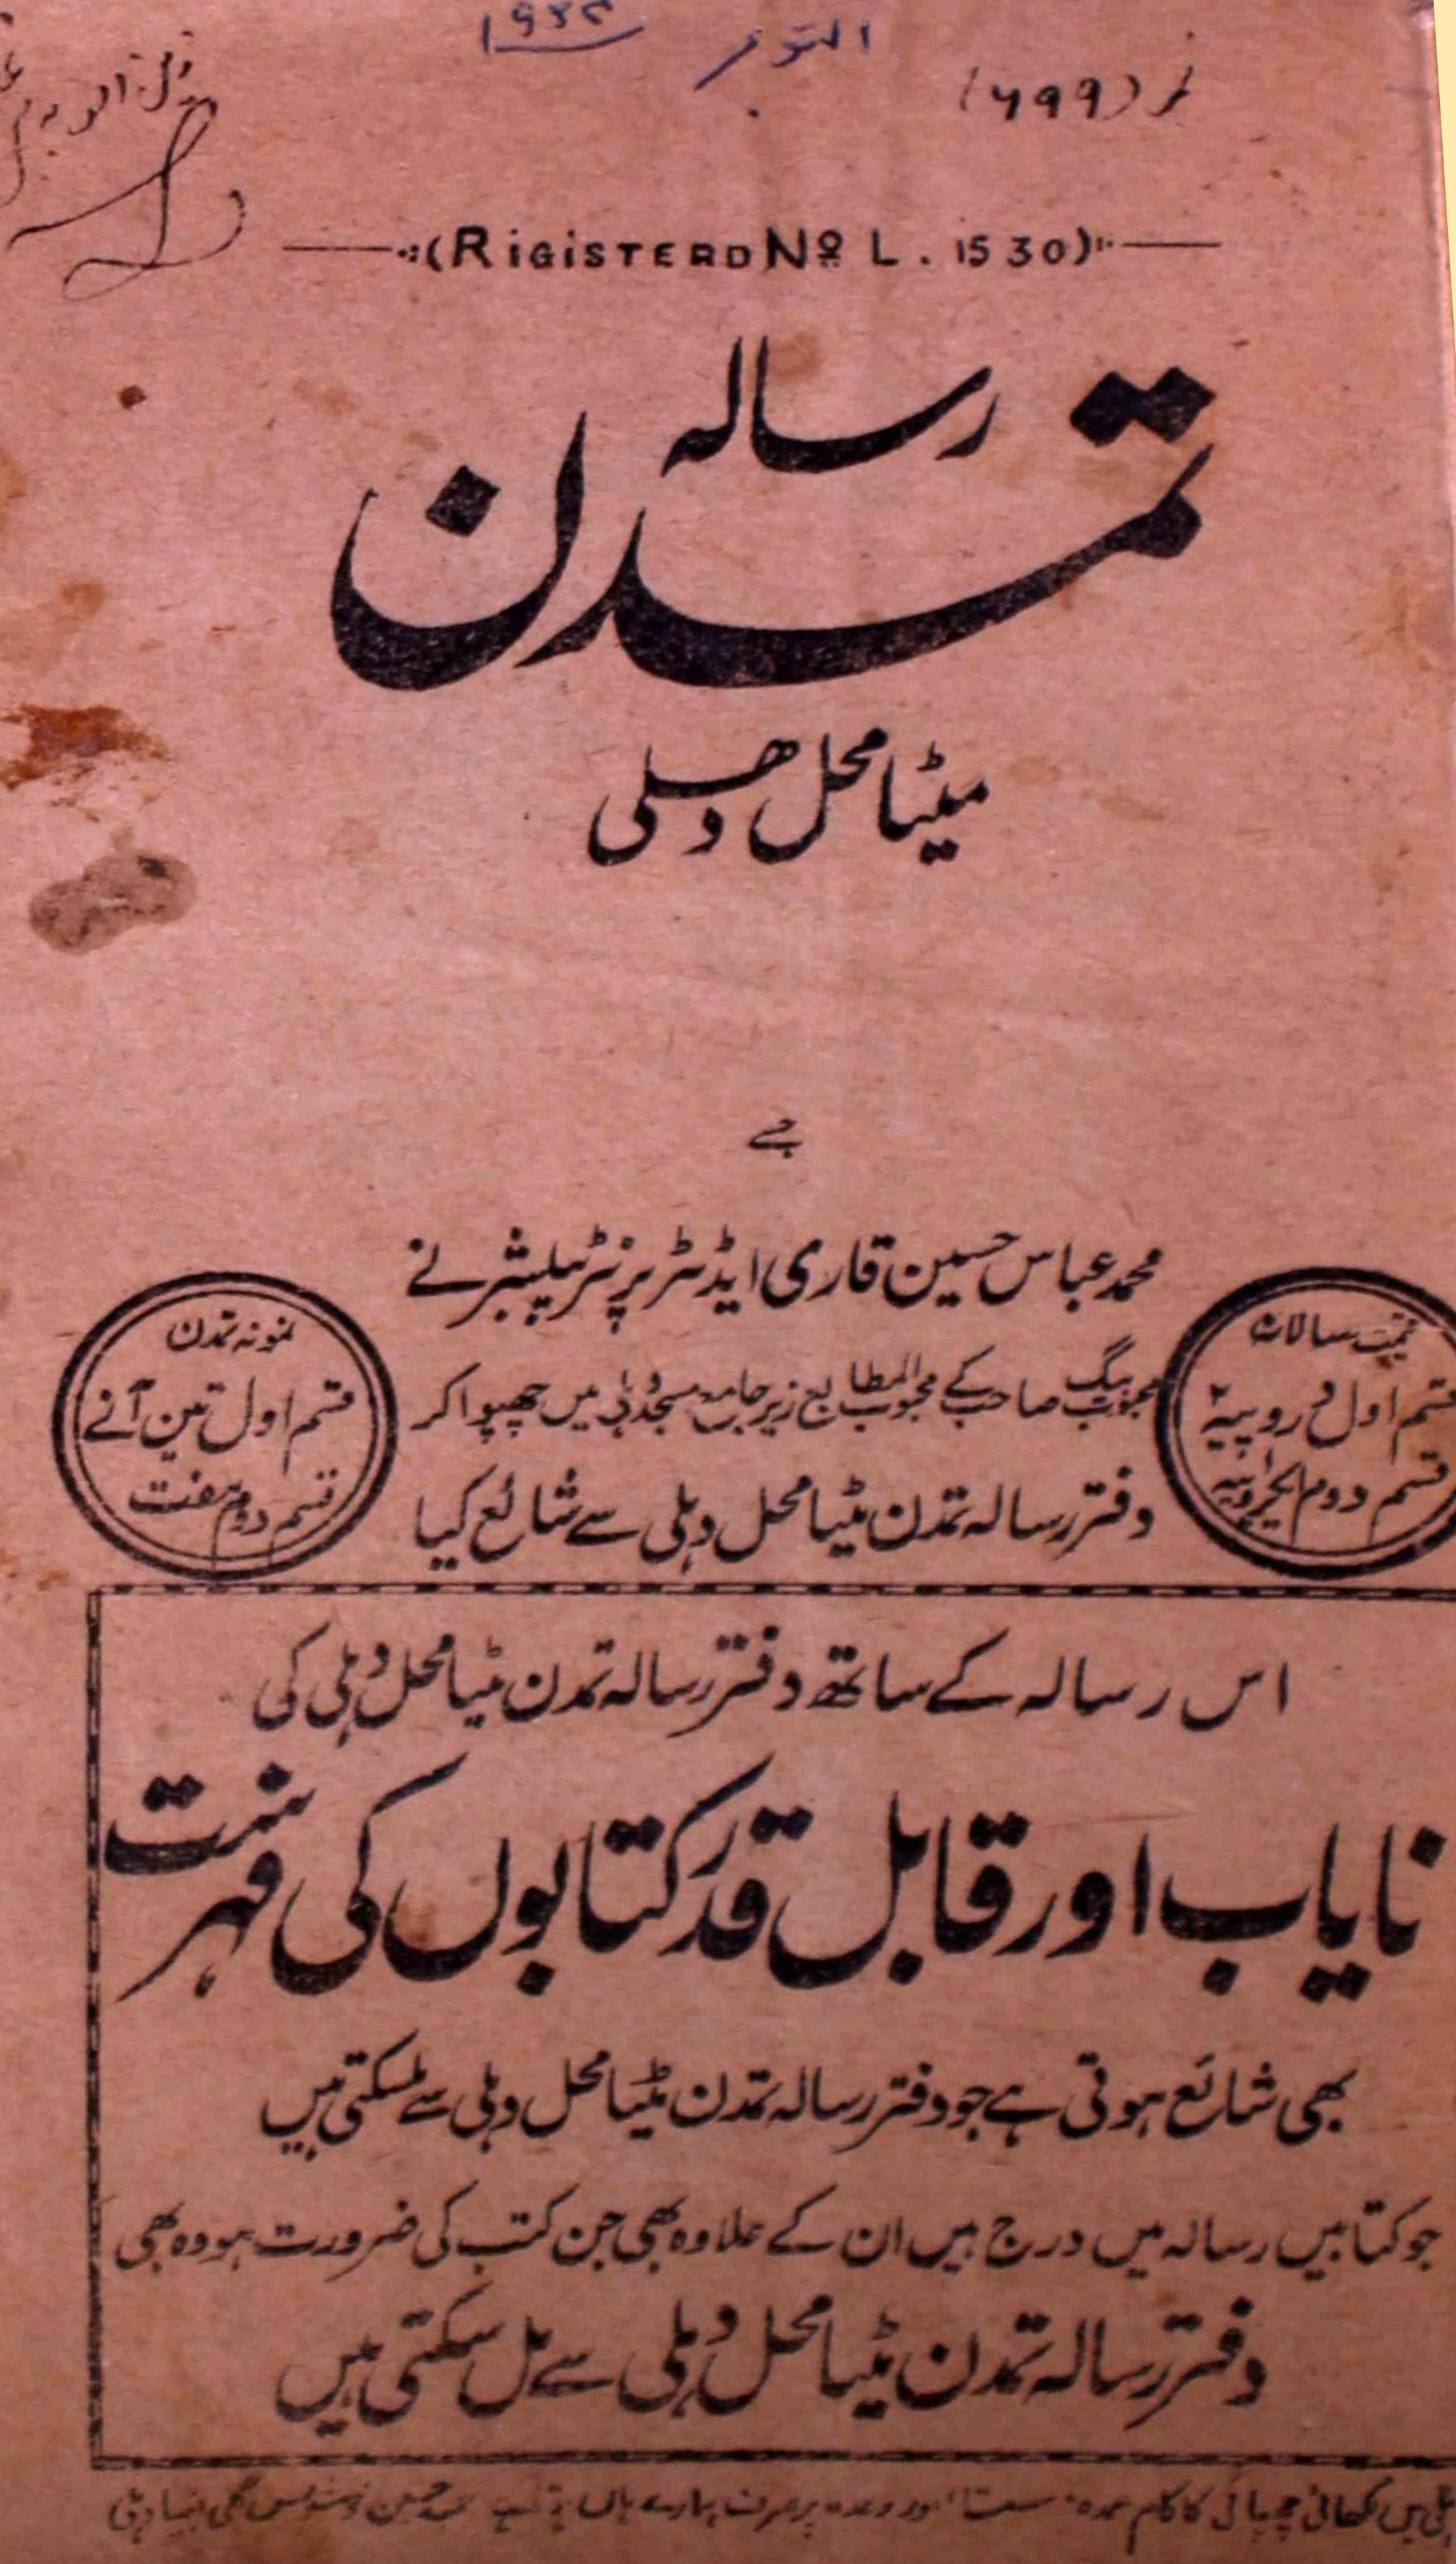 اکتوبر ۱۹۲۴
نمبر (۶۹۹)
(RiGiSTERD No L. 1530)
رسالہ
تمدن
مٹیا محل دھلی
جسے
محمد عباس حسین قاری ایڈیٹر پرنٹر پبلیشر نے
محبوب بیگ صاحب کے محبوب المطابع زیر جامع مسجد دہلی میں چھپوا کر
دفتر رسالہ تمدن مٹیا محل دہلی سے شائع کیا
قیمت سالانہ
قسم اول دو روپیہ
قسم دوم ایکروپیہ
نمونہ تمدن
قسم اول تین آنے
قسم دوم مفت
اس رسالہ کے ساتھ دفتر رسالہ تمدن مٹیا محل دہلی کی
نایاب اور قابل قدر کتابوں کی فہرست
بھی شائع ہوتی ہے جو دفتر رسالہ تمدن مٹیا محل دہلی سے ملسکتی ہیں
جو کتابیں رسالہ میں درج ہیں ان کے علاوہ بھی جن کتب کی ضرورت ہو وہ بھی
دفتر رسالہ تمدن مٹیا محل دہلی سے مل سکتی ہیں
میں لکھائی چھپائی کا کام عمدہ، سستا، اور وعدہ پر صرف ہمارے ہاں ہوتا ہے